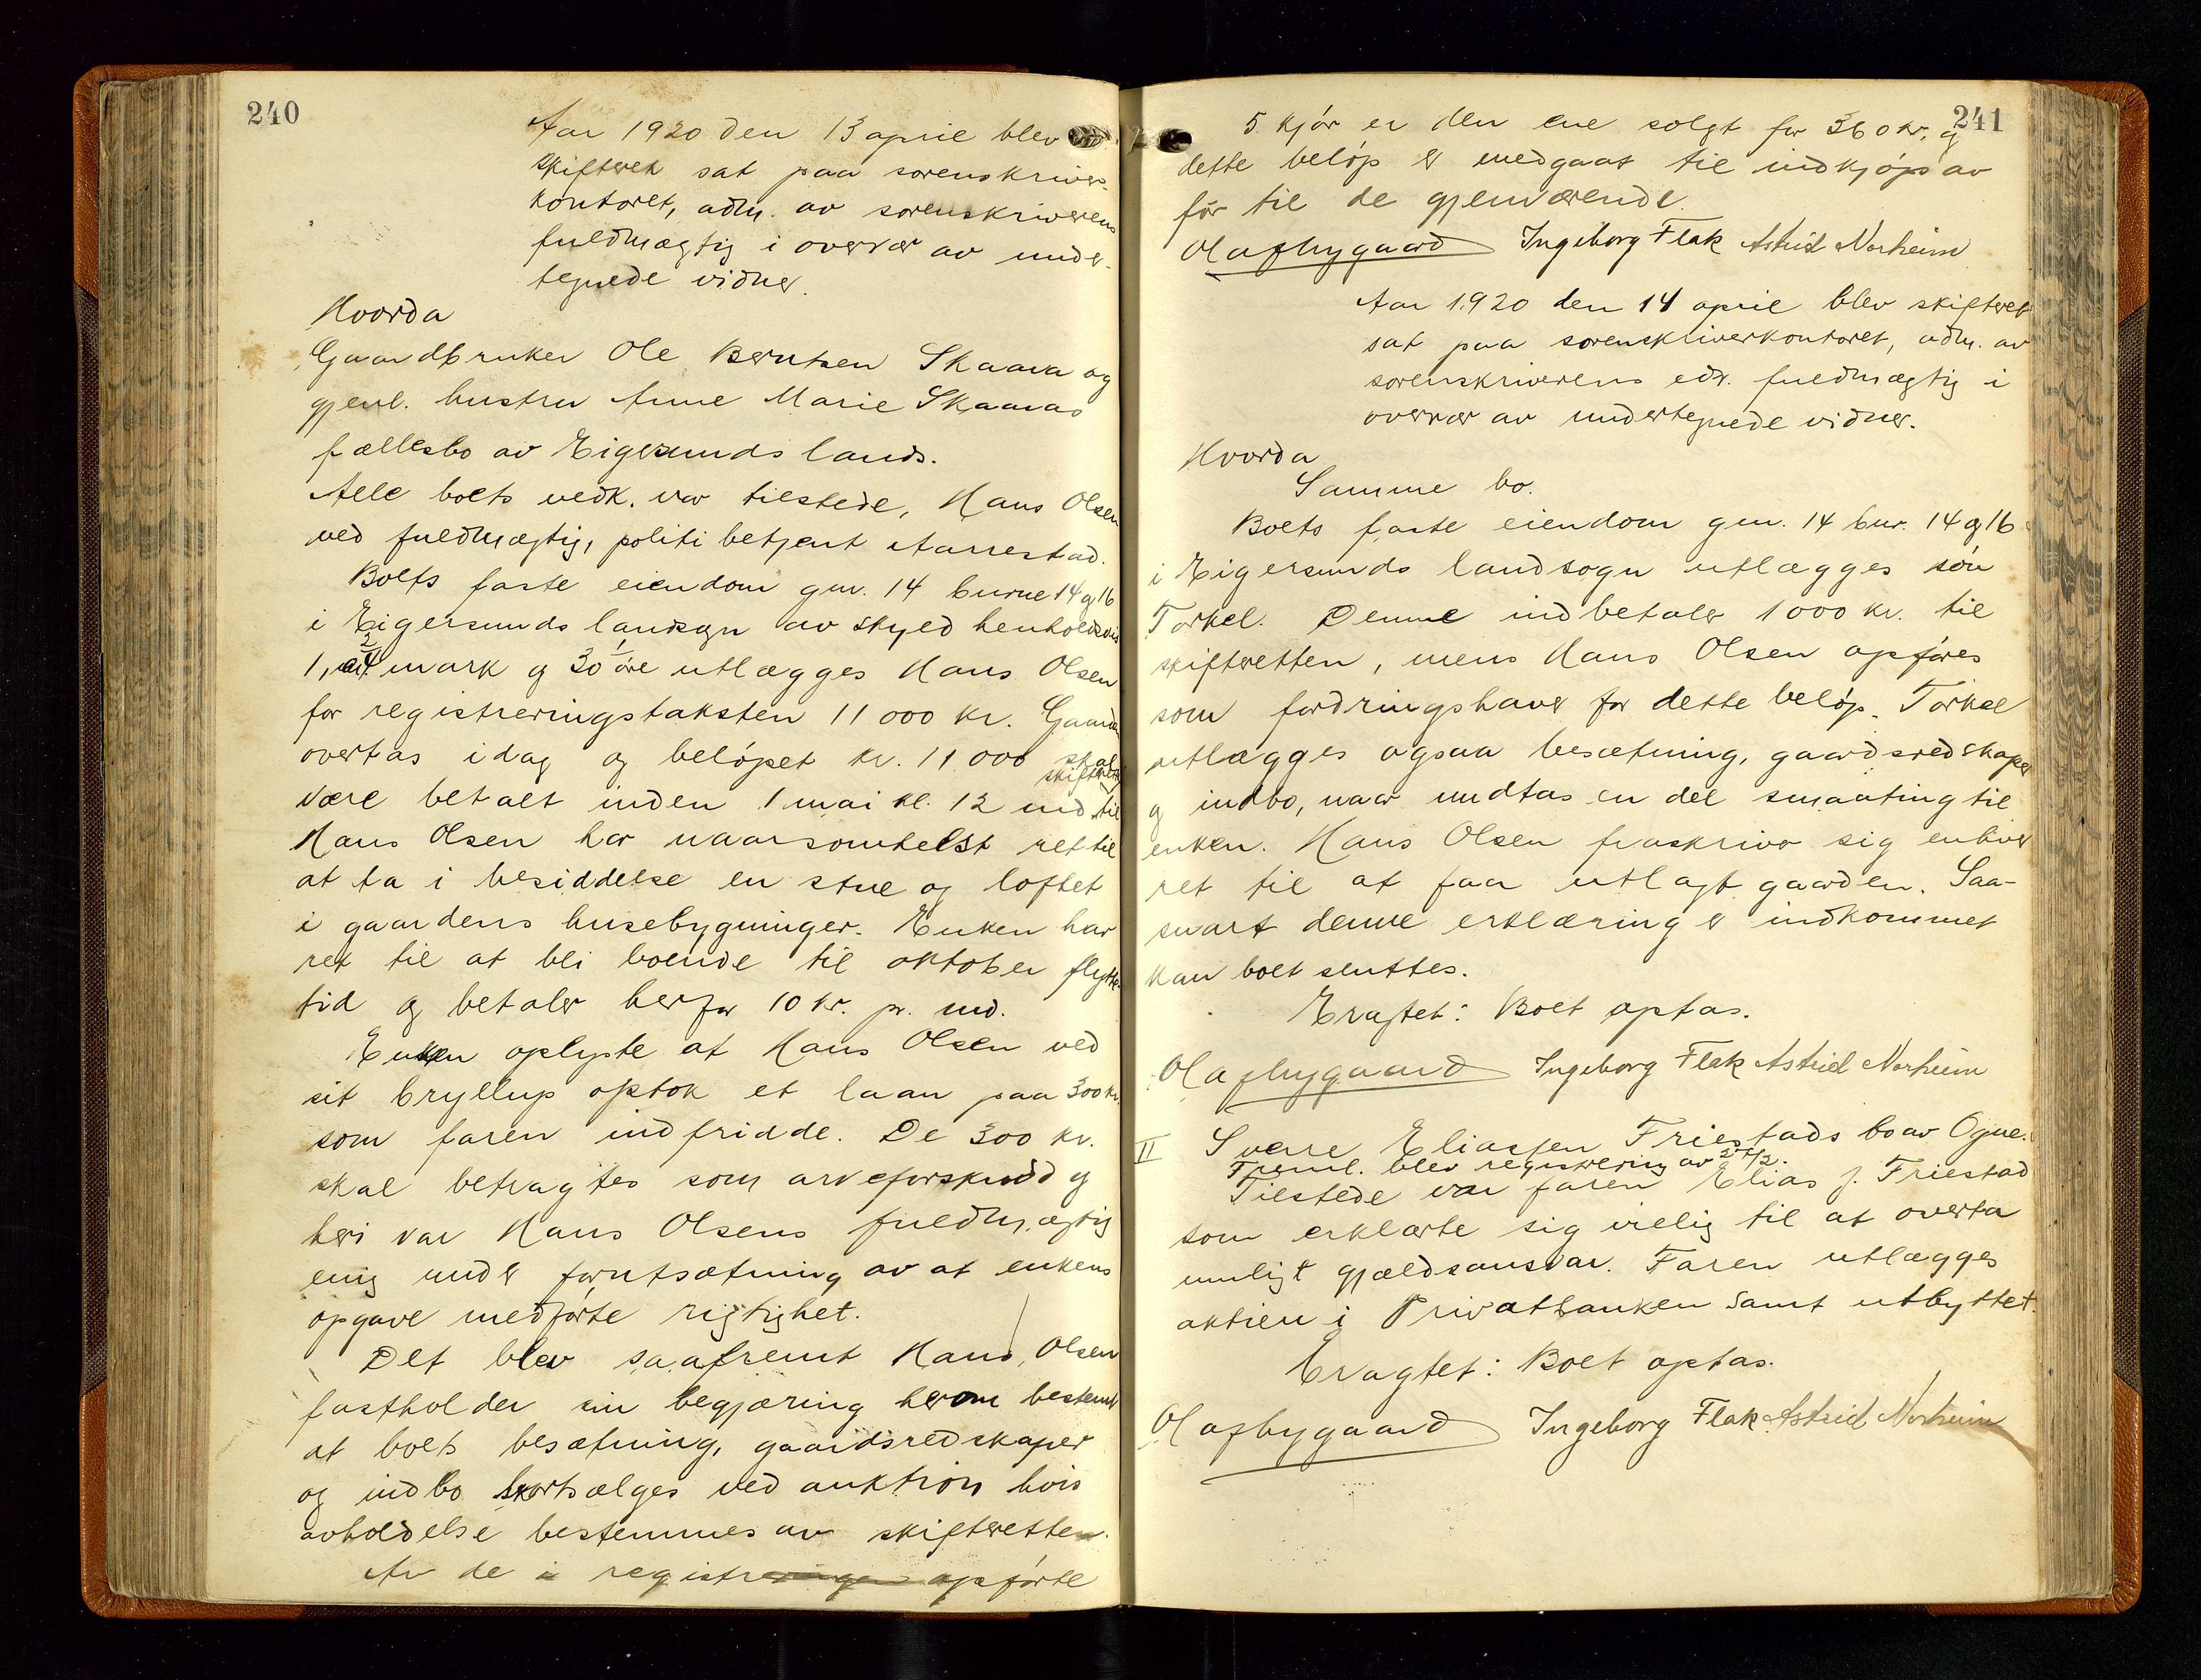 240
Aar 1920 den 13 april blev
skifteret sat paa sorenskriver-
kontoret, adm. av sorenskriverens
fuldmægtig i overvær av under-
tegnede vidner.
Hvorda
Gaardbruker Ole Berntsen Skaara og
gjenl. hustru Anne Marie Skaaras
fællesbo av Eigersunds lands.
Alle boets vedk. var tilstede, Hans Olsen
ved fuldmægtig, politibetjent Aarrestad.
Boets faste eiendom gnr. 14 bnrne 14 og 16
i Eigersunds landsogn av skyld henholdsvis
1, mark og 30 øre utlægges Hans Olsen
for registreringstaksten 11000 kr. Gaarden
overtas idag og beløpet kr. 11000 skal
være betalt inden 1 mai kl. 12 md. til skifteretten
Hans Olsen har naarsomhelst ret til
at ta i besiddelse en stue og loftet
i gaardens husebygninger. Enken har
ret til at bli boende til oktober flytte-
tid og betaler herfor 10 kr. pr. md.
Enken oplyste at Hans Olsen ved
sit bryllup optok et laan paa 300 kr.
som faren indfridde. De 300 kr.
skal betragtes som arveforskudd og
heri var Hans Olsens fuldmægtig
enig under forutsætning av at enkens
opgave medførte rigtighet.
Det blev saafremt Hans Olsen
fastholder sin begjæring herom bestemt
at boets besætning, gaardsredskaper
og indbo bortsælges ved auktion hvis
avholdelse bestemmes av skifteretten.
Av de i registreringen opførte
241
5 kjør er den ene solgt for 360 kr. og
dette beløp er medgaat til indkjøp av
fór til de gjenværende.
Olaf Nygaard Ingeborg Flak Astrid Norheim
Aar 1920 den 14 april blev skifteret
sat paa sorenskriverkontoret, adm. av
sorenskriverens edv. fuldmægtig i
overvær av undertegnede vidner.
Hvorda
Samme bo.
Boets faste eiendom gnr. 14 bnr. 14 og 16
i Eigersunds landsogn utlægges søn
Torkel. Denne indbetaler 1000 kr. til
skifteretten, mens Hans Olsen opføres
som fordringshaver for dette beløp. Torkel
utlægges ogsaa besætning, gaardsredskaper
og indbo, naar undtas en del smaating til
enken. Hans Olsen fraskriver sig enhver
ret til at faa utlagt gaarden. Saa-
snart denne erklæring er indkommet
kan boet sluttes.
Eragtet: Boet optas.
Olaf Nygaard Ingeborg Flak Astrid Norheim
II Sverre Eliassen Friestads bo av Ogne.
Freml. blev registrering av 27/2.
Tilstede var faren Elias J. Friestad
som erklærte sig villig til at overta
muligt gjældsansvar. Faren utlægges
aktien i Privatbanken samt utbyttet.
Eragtet: Boet optas.
Olaf Nygaard Ingeborg Flak Astrid Norheim